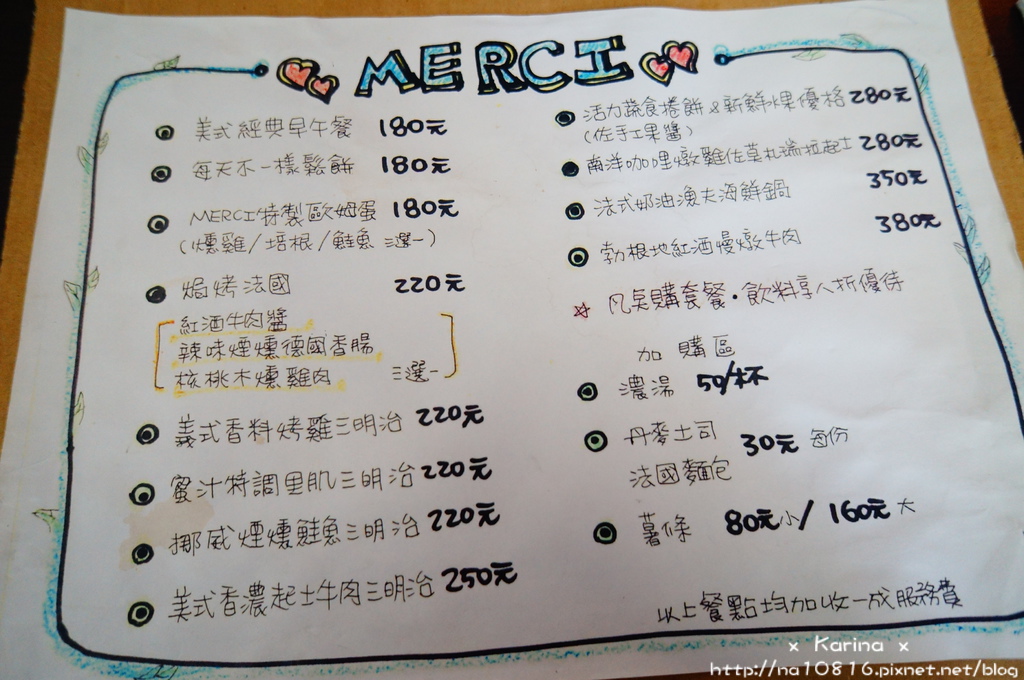 MERCI
美式經典早午餐 180元
每天不一樣鬆餅 180元
MERCI特製歐姆蛋 180元
(燻雞/培根/鮭魚 三選一)
焗烤法國 220元
紅酒牛肉醬
辣味煙燻德國香腸
核桃木燻雞肉 三選一
義式香料烤雞三明治 220元
蜜汁特調里肌三明治 220元
挪威煙燻鮭魚三明治 220元
美式香濃起士牛肉三明治 250元
活力蔬食捲餅&新鮮水果優格 280元
(佐手工果醬)
南洋咖哩燉雞佐莫札瑞拉起士 280元
法式奶油漁夫海鮮鍋 350元
勃根地紅酒慢燉牛肉 380元
凡點購套餐·飲料享八折優待
加購區
濃湯 50/杯
丹麥土司
法國麵包 30元 每份
薯條 80元小/160元大
以上餐點均加收一成服務費
x Karina x
http://na10816.pixnet.net/blog